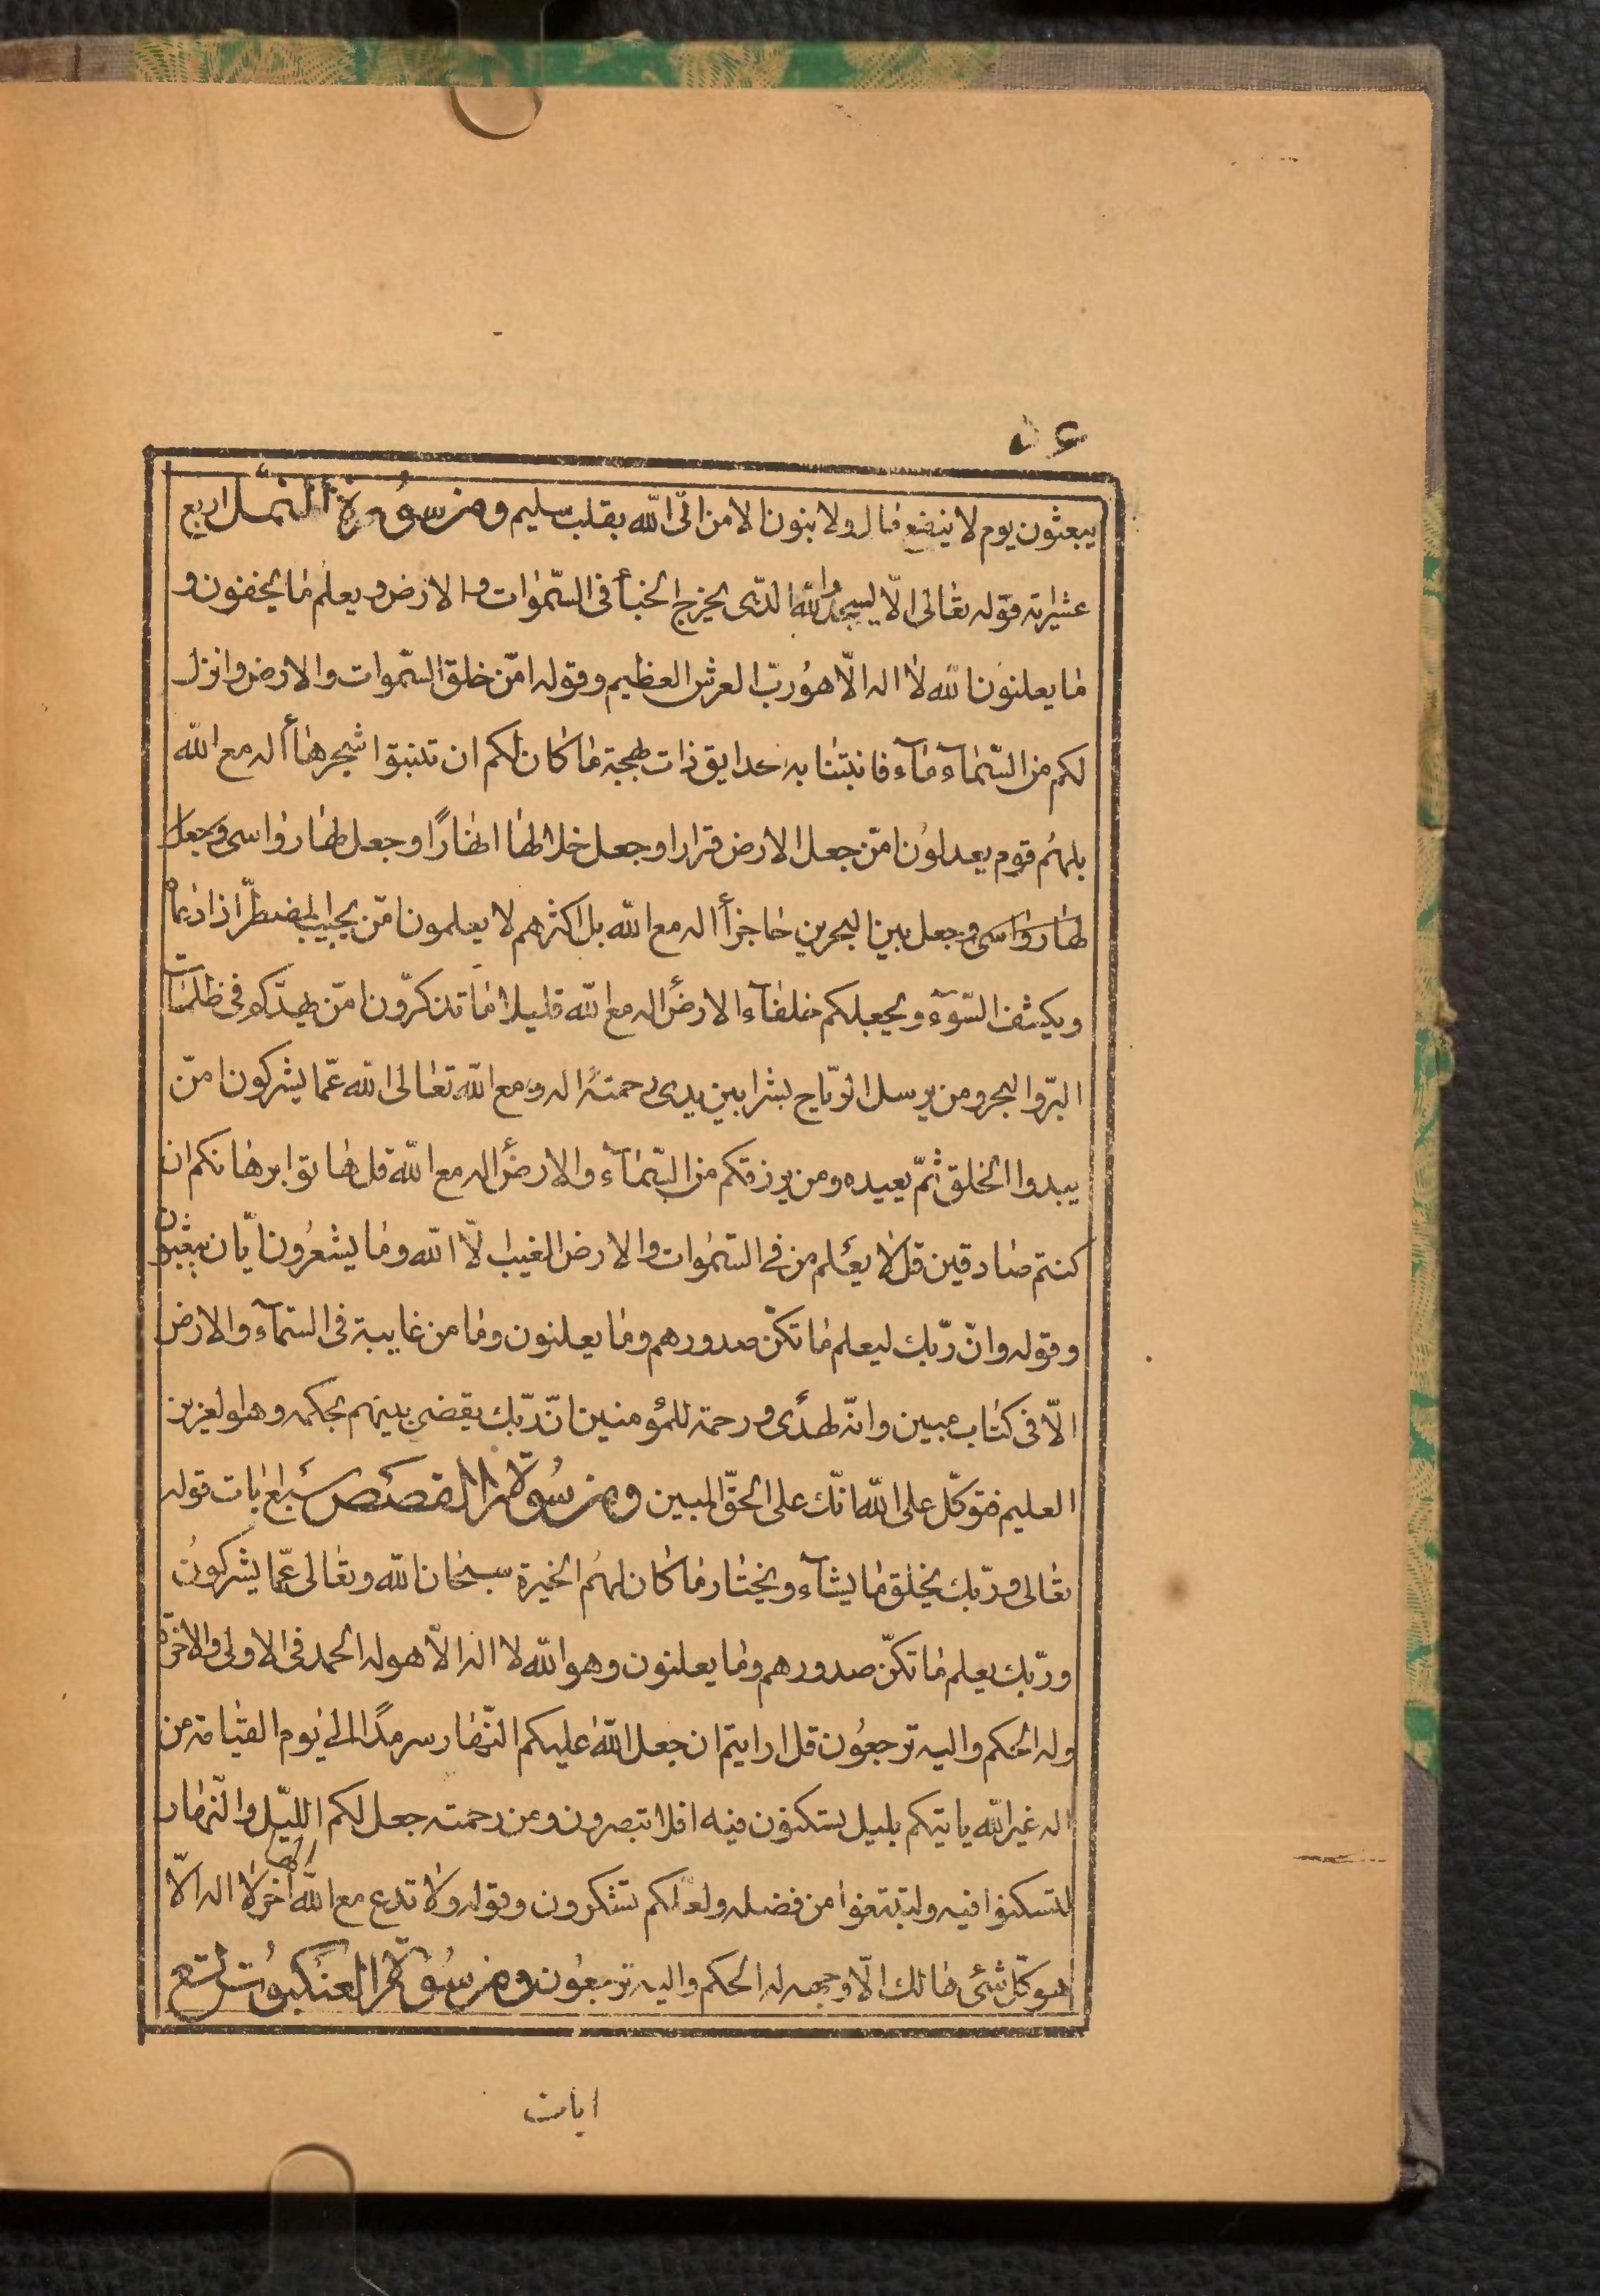 يبعثون يوم لا ينفع مال ولا بنون الا من اتى الله بقلب سليم ومن سورة النمل اربع
عشراية قوله تعالى الّا يسجدوا لله الذى يخرج الخبأ فى السّموات والارض ويعلم ما يخفون و
ما يعلنون الله لا اله الّا هو ربّ العرش العظيم وقوله امّن خلق السّموات والارض وانزل
لكم من السّمآء مآء فانبتنا به حدايق ذات بهجة ما كان لكم ان تنبتوا شجرها أاله مع الله
بل هُم قوم يعدلون امّن جعل الارض قرارا وجعل خلالها انهارًا وجعل لها رواسى وجعل
لها رواسى وجعل بين البحرين حاجزاً أاله مع الله بل اكثرهم لا يعلمون امّن يجيب المضطرّ اذا دعاه
ويكشف السّوٓء ويجعلكم خلفآء الارض أاله مع الله قليلا ما تذكرّون امّن يهديكم فى ظلمات
البرّ والبحر ومن يرسل الرّياح بشرا بين يدى رحمته أاله مع الله تعالى الله عمّا يشركون امّن
يبدوا الخلق ثمّ يعيده ومن يرزقكم من السّمآء والارض أاله مع الله قل هاتوا برهانكم ان
كنتم صادقين قل لا يعلم من فى السّموات والارض الغيب الّا الله وما يشعُرون ايّان يبعثون
وقوله وانّ ربّك ليعلم ما تكنّ صدورهم وما يعلنون وما من غايبة فى السّمآء والارض
الّا فى كتاب مبين وانّه لهدًى ورحمة للمؤمنين انّ ربّك يقضى بينهم بحكمه وهو العزيز
العليم فتوكّل على الله انّك على الحقّ المبين ومن سُورة القصص سَبع ايات قوله
تعالى وربّك يخلق ما يشآء ويختار ما كان لهُم الخيرة سبحان الله وتعالى عمّا يشركون
وربّك يعلم ما تكنّ صدورهم وما يعلنون وهو الله لا اله الّا هو له الحمد فى الاولى والاخرة
وله الحكم واليه ترجعُون قل ارايتم ان جعل الله عليكم النّهار سرمدًا الى يوم القيامة من
اله غير الله ياتيكم بليل تسكنون فيه افلا تبصرون ومن رحمته جعل لكم اللّيل والنّهار
لتسكنوا فيه ولتبتغوا من فضله ولعلّكم تشكرون وقوله ولا تدع مع الله الها اخر لا اله الّا
هو كلّ شئ هالك الّا وجهه له الحكم واليه ترجعُون ومن سُورة العنكبوُت تسع
ايات